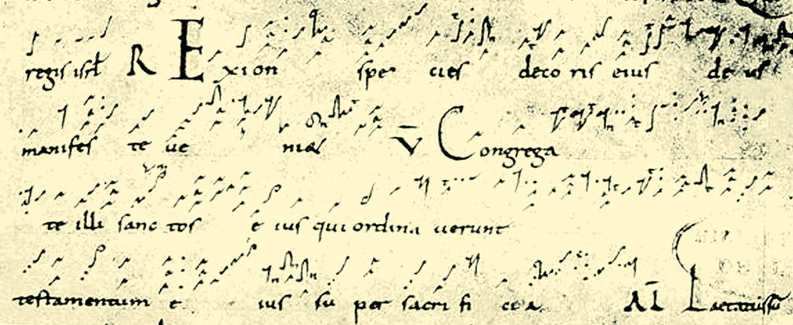 regis isrl R EX sion spe cies deco ris eius deus
manifes te ve niet V Congrega
te illi sanc tos e ius qui ordina verunt
testamentum e ius su per sacri fi cia Al Laetatus su